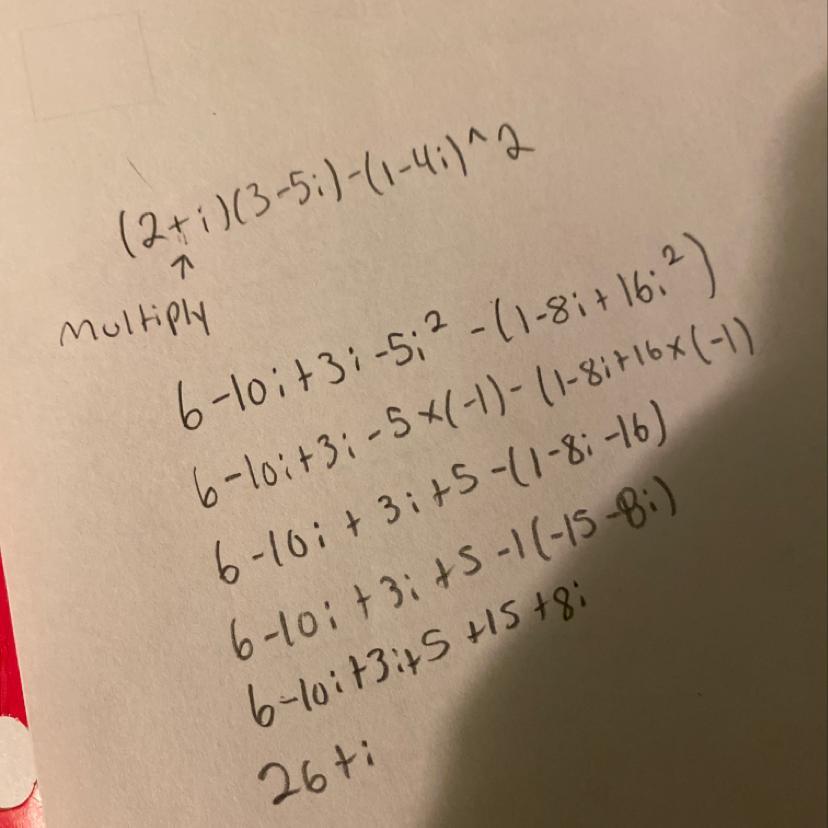 (2+i)(3-5i)-(1-4i)^2
↑
Multiply
6-10i+3i-5i²-(1-8i+16i²)
6-10i+3i-5×(-1)-(1-8i+16×(-1)
6-10i+3i+5-(1-8i-16)
6-10i+3i+5-1(-15-8i)
6-10i+3i+5+15+8i
26+i